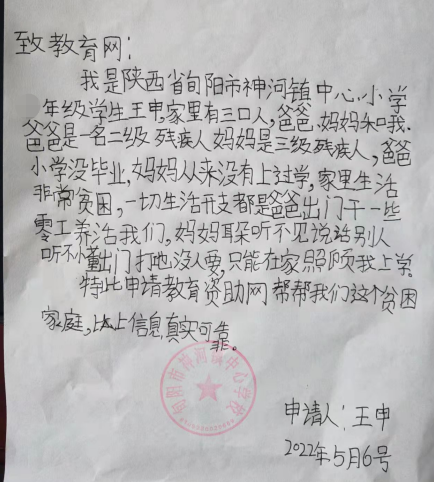 致教育网:
我是陕西省旬阳市神河镇中心小学
年级学生王申,家里有三口人,爸爸、妈妈和我.
爸爸是一名二级残疾人妈妈是三级残疾人,爸爸
小学没毕业,妈妈从来没有上过学,家里生活
非常贫困,一切生活开支都是爸爸出门干一些
零工养活我们,妈妈耳朵听不见说话别人
听不懂出门打地没人要,只能在家照顾我上学.
特此申请教育资助网帮帮我们这个贫困
家庭,以上信息真实可靠。
旬阳市神河镇中心学校
申请人:王申
2022年5月6号